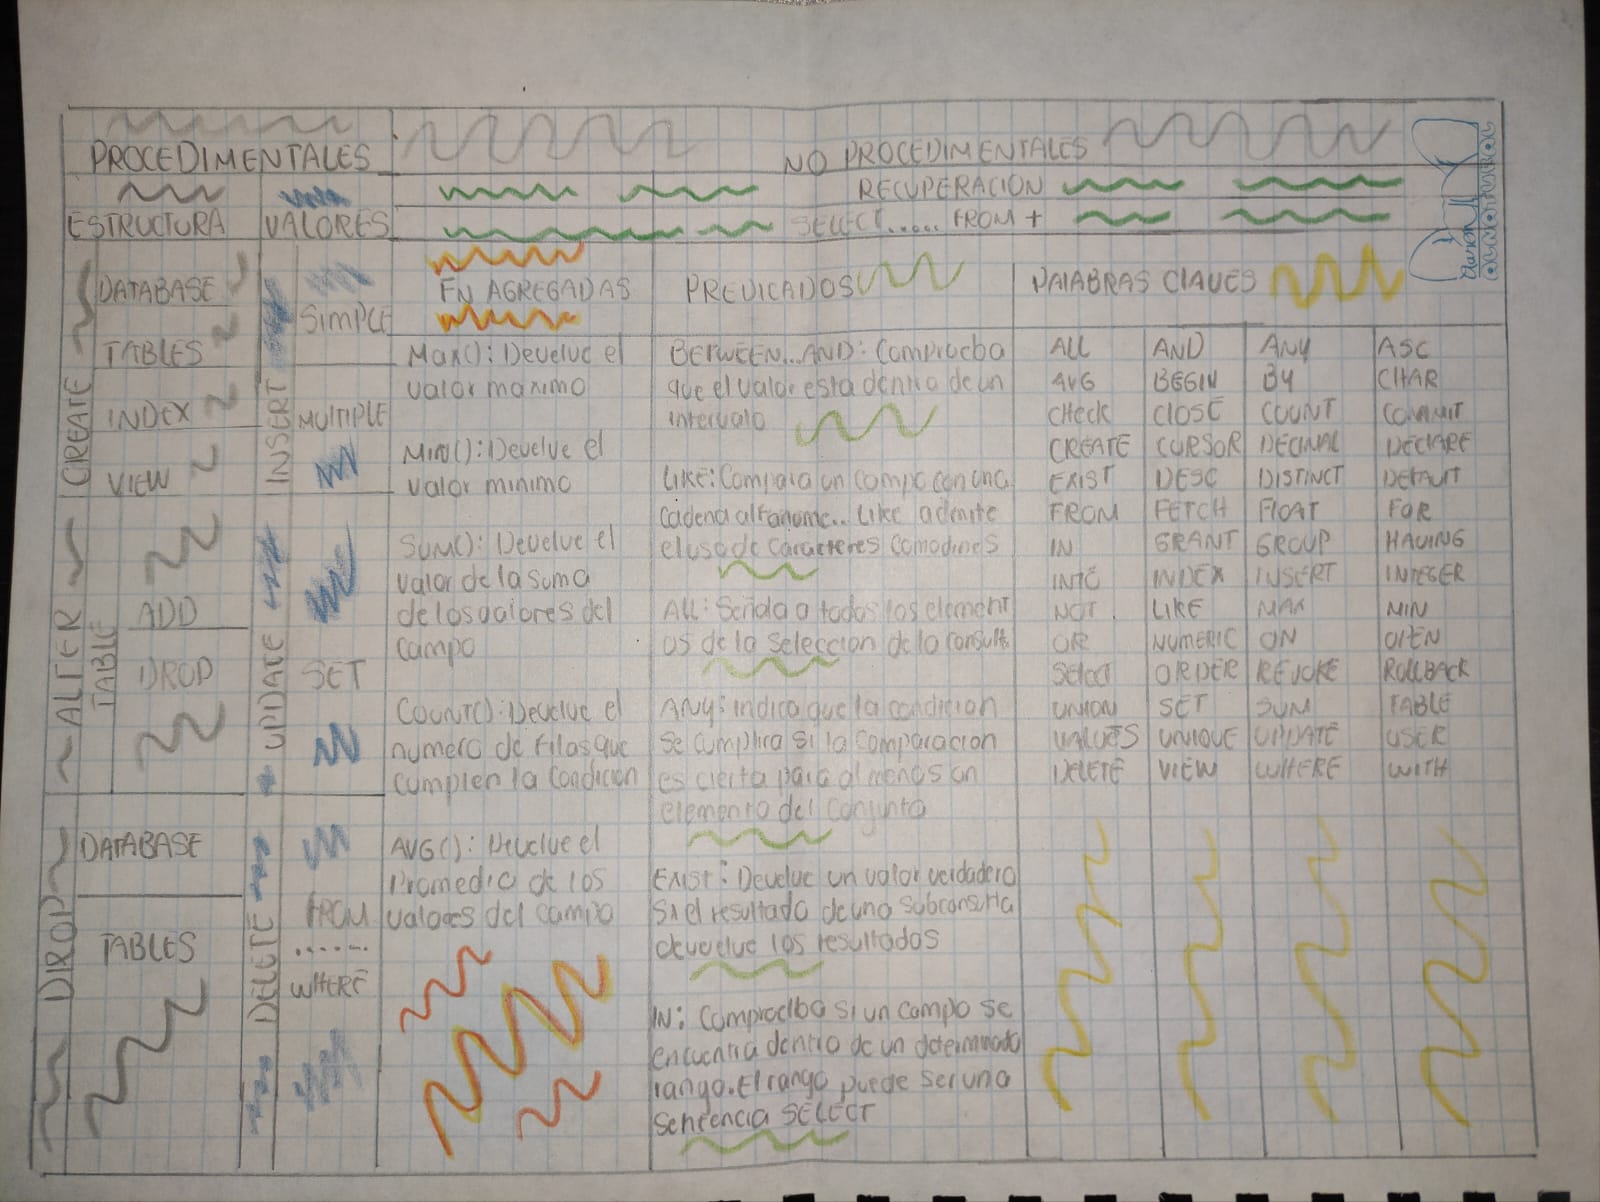 PROCEDIMENTALES
NO PROCEDIMENTALES
RECUPERACION
ESTRUCTURA
VALORES
SELECT...... FROM +
CREATE
DATABASE
TABLES
INDEX
VIEW
ALTER
TABLE
ADD
DROP
DROP
DATABASE
TABLES
INSERT
SIMPLE
MULTIPLE
UPDATE
SET
DELETE
FROM
......
WHERE
FN AGREGADAS
Max(): Devuelve el
valor maximo
Min(): Devuelve el
valor minimo
SUM(): Devuelve el
valor de la suma
de los valores del
campo
COUNT(): Devuelve el
numero de filas que
cumplen la condicion
AVG(): Devuelve el
Promedio de los
valores del campo
PREDICADOS
BETWEEN...AND: Comprueba
que el valor esta dentro de un
intervalo
LIKE: Compara un campo con una
Cadena alfanumc.. Like admite
el uso de caracteres comodines
All: Señala a todos los element
os de la seleccion de la consult
ANY: indica que la condicion
se cumplira si la comparacion
es cierta para al menos un
elemento del conjunto
EXIST: Devuelve un valor verdadero
si el resultado de una subconsulta
devuelve los resultados
IN: Comprueba si un campo se
encuentra dentro de un determinado
rango. El rango puede ser una
sentencia SELECT
PALABRAS CLAVES
ALL AND ANY ASC
AVG BEGIN BY CHAR
CHeck CLOSE COUNT COMMIT
CREATE CURSOR DECIMAL DECLARE
EXIST DESC DISTINCT DEFAULT
FROM FETCH FLOAT FOR
IN GRANT GROUP HAVING
INTO INDEX INSERT INTEGER
NOT LIKE MAX MIN
OR NUMERIC ON OPEN
Select ORDER REVOKE ROLLBACK
UNION SET SUM TABLE
VALUES UNIQUE UPDATE USER
DELETE VIEW WHERE WITH